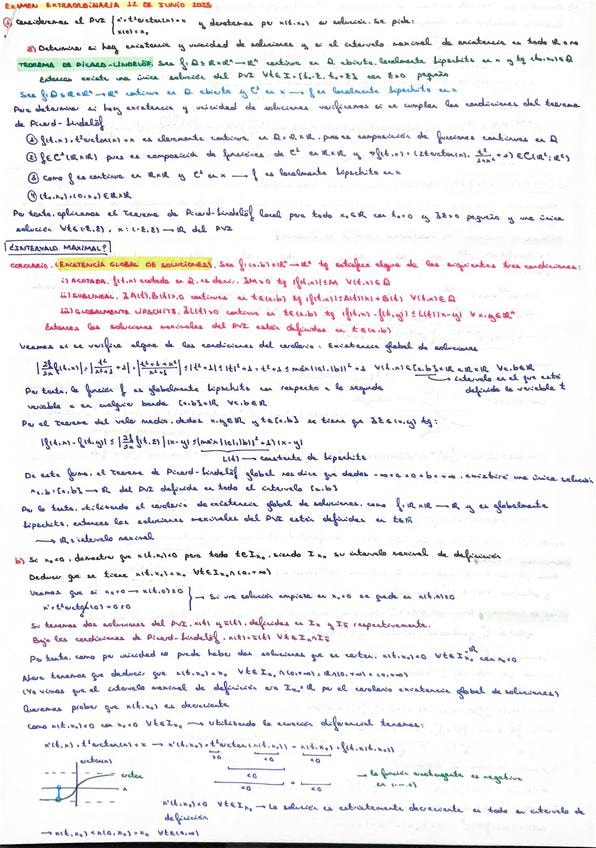 EXAMEN EXTRAORDINARIA 12 DE JUNIO 2025
① Consideremos el PVI { x' = t² arctan(x) + x y denotemos por x(t, x₀) su solución. Se pide:
x(0) = x₀
a) Determina si hay existencia y unicidad de soluciones y si el intervalo maximal de existencia es todo ℝ o no
TEOREMA DE PICARD-LINDELÖF. Sea f: Ω ⊆ ℝ×ℝⁿ → ℝⁿ continua en Ω abierto, localmente lipschitz en x y (t₀, x₀) ∈ Ω
Entonces existe una única solución del PVI ∀t ∈ I = [t₀-ε, t₀+ε] con ε>0 pequeño
Sea f: Ω ⊆ ℝ×ℝⁿ → ℝⁿ continua en Ω abierto y C¹ en x → f es localmente lipschitz en x
Para determinar si hay existencia y unicidad de soluciones verificamos si se cumplen las condiciones del teorema
de Picard-Lindelöf
① f(t,x) = t² arctan(x) + x es claramente continua en Ω = ℝ×ℝ, pues es composición de funciones continuas en Ω
② f ∈ C¹(ℝ×ℝ) pues es composición de funciones de C¹ en ℝ×ℝ y ∇f(t,x) = (2t arctan(x), t²/(1+x²) + 1) ∈ C(ℝ², ℝ²)
③ Como f es continua en ℝ×ℝ y C¹ en x → f es localmente lipschitz en x
④ (t₀, x₀) = (0, x₀) ∈ ℝ×ℝ
Por tanto, aplicamos el Teorema de Picard-Lindelöf local para todo x₀ ∈ ℝ con t₀ = 0 y ∃ε>0 pequeño y una única
solución ∀t ∈ (-ε, ε), x: (-ε, ε) → ℝ del PVI
¿INTERVALO MAXIMAL?
COROLARIO. (EXISTENCIA GLOBAL DE SOLUCIONES). Sea f: (a,b)×ℝⁿ → ℝⁿ tq satisface alguna de las siguientes tres condiciones:
i) ACOTADA. f(t,x) acotada en Ω, es decir, ∃M>0 tq |f(t,x)| ≤ M ∀(t,x) ∈ Ω
ii) SUBLINEAL. ∃A(t), B(t) > 0 continuas en t ∈ (a,b) tq |f(t,x)| ≤ A(t)|x| + B(t) ∀(t,x) ∈ Ω
iii) GLOBALMENTE LIPSCHITZ. ∃L(t) > 0 continua en t ∈ (a,b) tq |f(t,x) - f(t,y)| ≤ L(t)|x-y| ∀x,y ∈ ℝⁿ
Entonces las soluciones maximales del PVI están definidas en t ∈ (a,b)
Veamos si se verifica alguna de las condiciones del corolario: Existencia global de soluciones
Por tanto, la función f es globalmente lipschitz con respecto a la segunda
variable x en cualquier banda [a,b]×ℝ ∀a,b ∈ ℝ
intervalo en el que está
definida la variable t
Por el Teorema del valor medio, dados x,y ∈ ℝ y t ∈ [a,b] se tiene que ∃z ∈ (x,y) tq:
|f(t,x) - f(t,y)| ≤ |∂f/∂x f(t,z)| |x-y| ≤ (máx{|a|,|b|}² + 1) |x-y|
L(t) → constante de lipschitz
De esta forma, el Teorema de Picard-Lindelöf global nos dice que dados -∞<a<0<b<+∞, existirá una única solución
[a,b] → ℝ del PVI definida en todo el intervalo [a,b]
Por lo tanto, utilizando el corolario de existencia global de soluciones, como f: ℝ×ℝ → ℝ y es globalmente
lipschitz, entonces las soluciones maximales del PVI están definidas en t ∈ ℝ
→ ℝ = intervalo maximal
b) Si x₀<0, demostrar que x(t,x₀)<0 para todo t ∈ Iₓ₀, siendo Iₓ₀ su intervalo maximal de definición
Deducir que se tiene x(t,x₀)<x₀ ∀t ∈ Iₓ₀ ∩ (0,+∞)
Veamos que si x₀=0 → x(t,0) ≡ 0
x' = t² arctg(0) + 0 = 0
→ Si una solución empieza en x₀=0 se queda en x(t,0) ≡ 0
Si tenemos dos soluciones del PVI, x(t) y x̄(t), definidas en Iₓ y Iₓ̄ respectivamente.
Bajo las condiciones de Picard-Lindelöf, x(t) = x̄(t) ∀t ∈ Iₓ ∩ Iₓ̄
Por tanto, como por unicidad no puede haber dos soluciones que se corten, x(t,x₀)<0 ∀t ∈ Iₓ₀ = ℝ con x₀<0
Ahora tenemos que deducir que x(t,x₀)<x₀ ∀t ∈ Iₓ₀ ∩ (0,+∞) = ℝ ∩ (0,+∞) = (0,+∞)
(Ya vimos que el intervalo maximal de definición era Iₓ₀ = ℝ por el corolario existencia global de soluciones)
Queremos probar que x(t,x₀) es decreciente
Como x(t,x₀)<0 con x₀<0 ∀t ∈ Iₓ₀ → utilizando la ecuación diferencial tenemos:
x'(t,x) = t² arctan(x) + x → x'(t,x₀) = t² arctan(x(t,x₀)) + x(t,x₀) = f(t,x(t,x₀))
>0 <0 <0
<0 + <0
<0
arctan(x)
arctan
x
→ la función arcotangente es negativa
en (-∞,0)
x'(t,x₀)<0 ∀t ∈ Iₓ₀ → La solución es estrictamente decreciente en todo su intervalo de
definición
→ x(t,x₀)<x(0,x₀)=x₀ ∀t ∈ (0,∞)